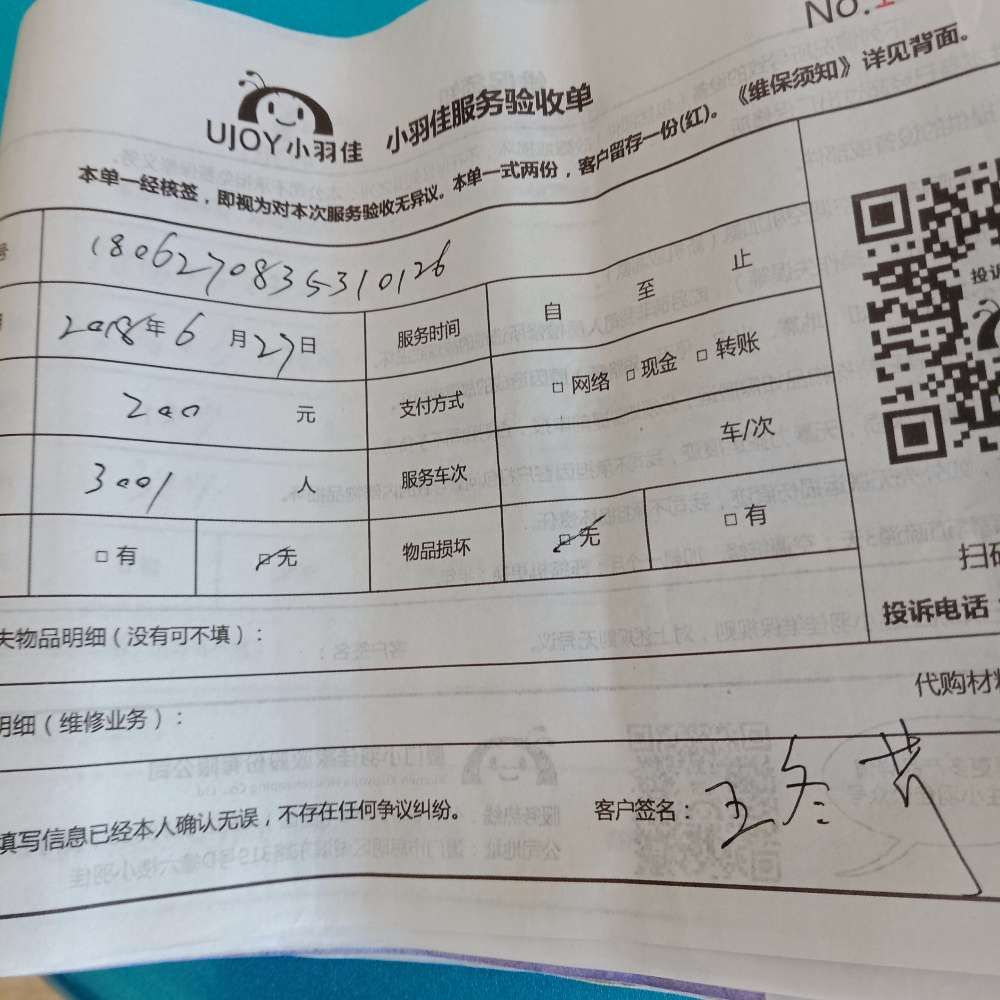 No.
UJOY小羽佳 小羽佳服务验收单
本单一经核签，即视为对本次服务验收无异议。本单一式两份，客户留存一份(红)。《维保须知》详见背面。
号 1806270835310126
2018年6月27日 服务时间 自 至 止
200 元 支付方式 □网络 □现金 □转账
3001 人 服务车次 车/次
□有 □无 物品损坏 □无 □有
扫码
投诉电话：
失物品明细（没有可不填）：
代购材料
明细（维修业务）：
填写信息已经本人确认无误，不存在任何争议纠纷。 客户签名：王冬